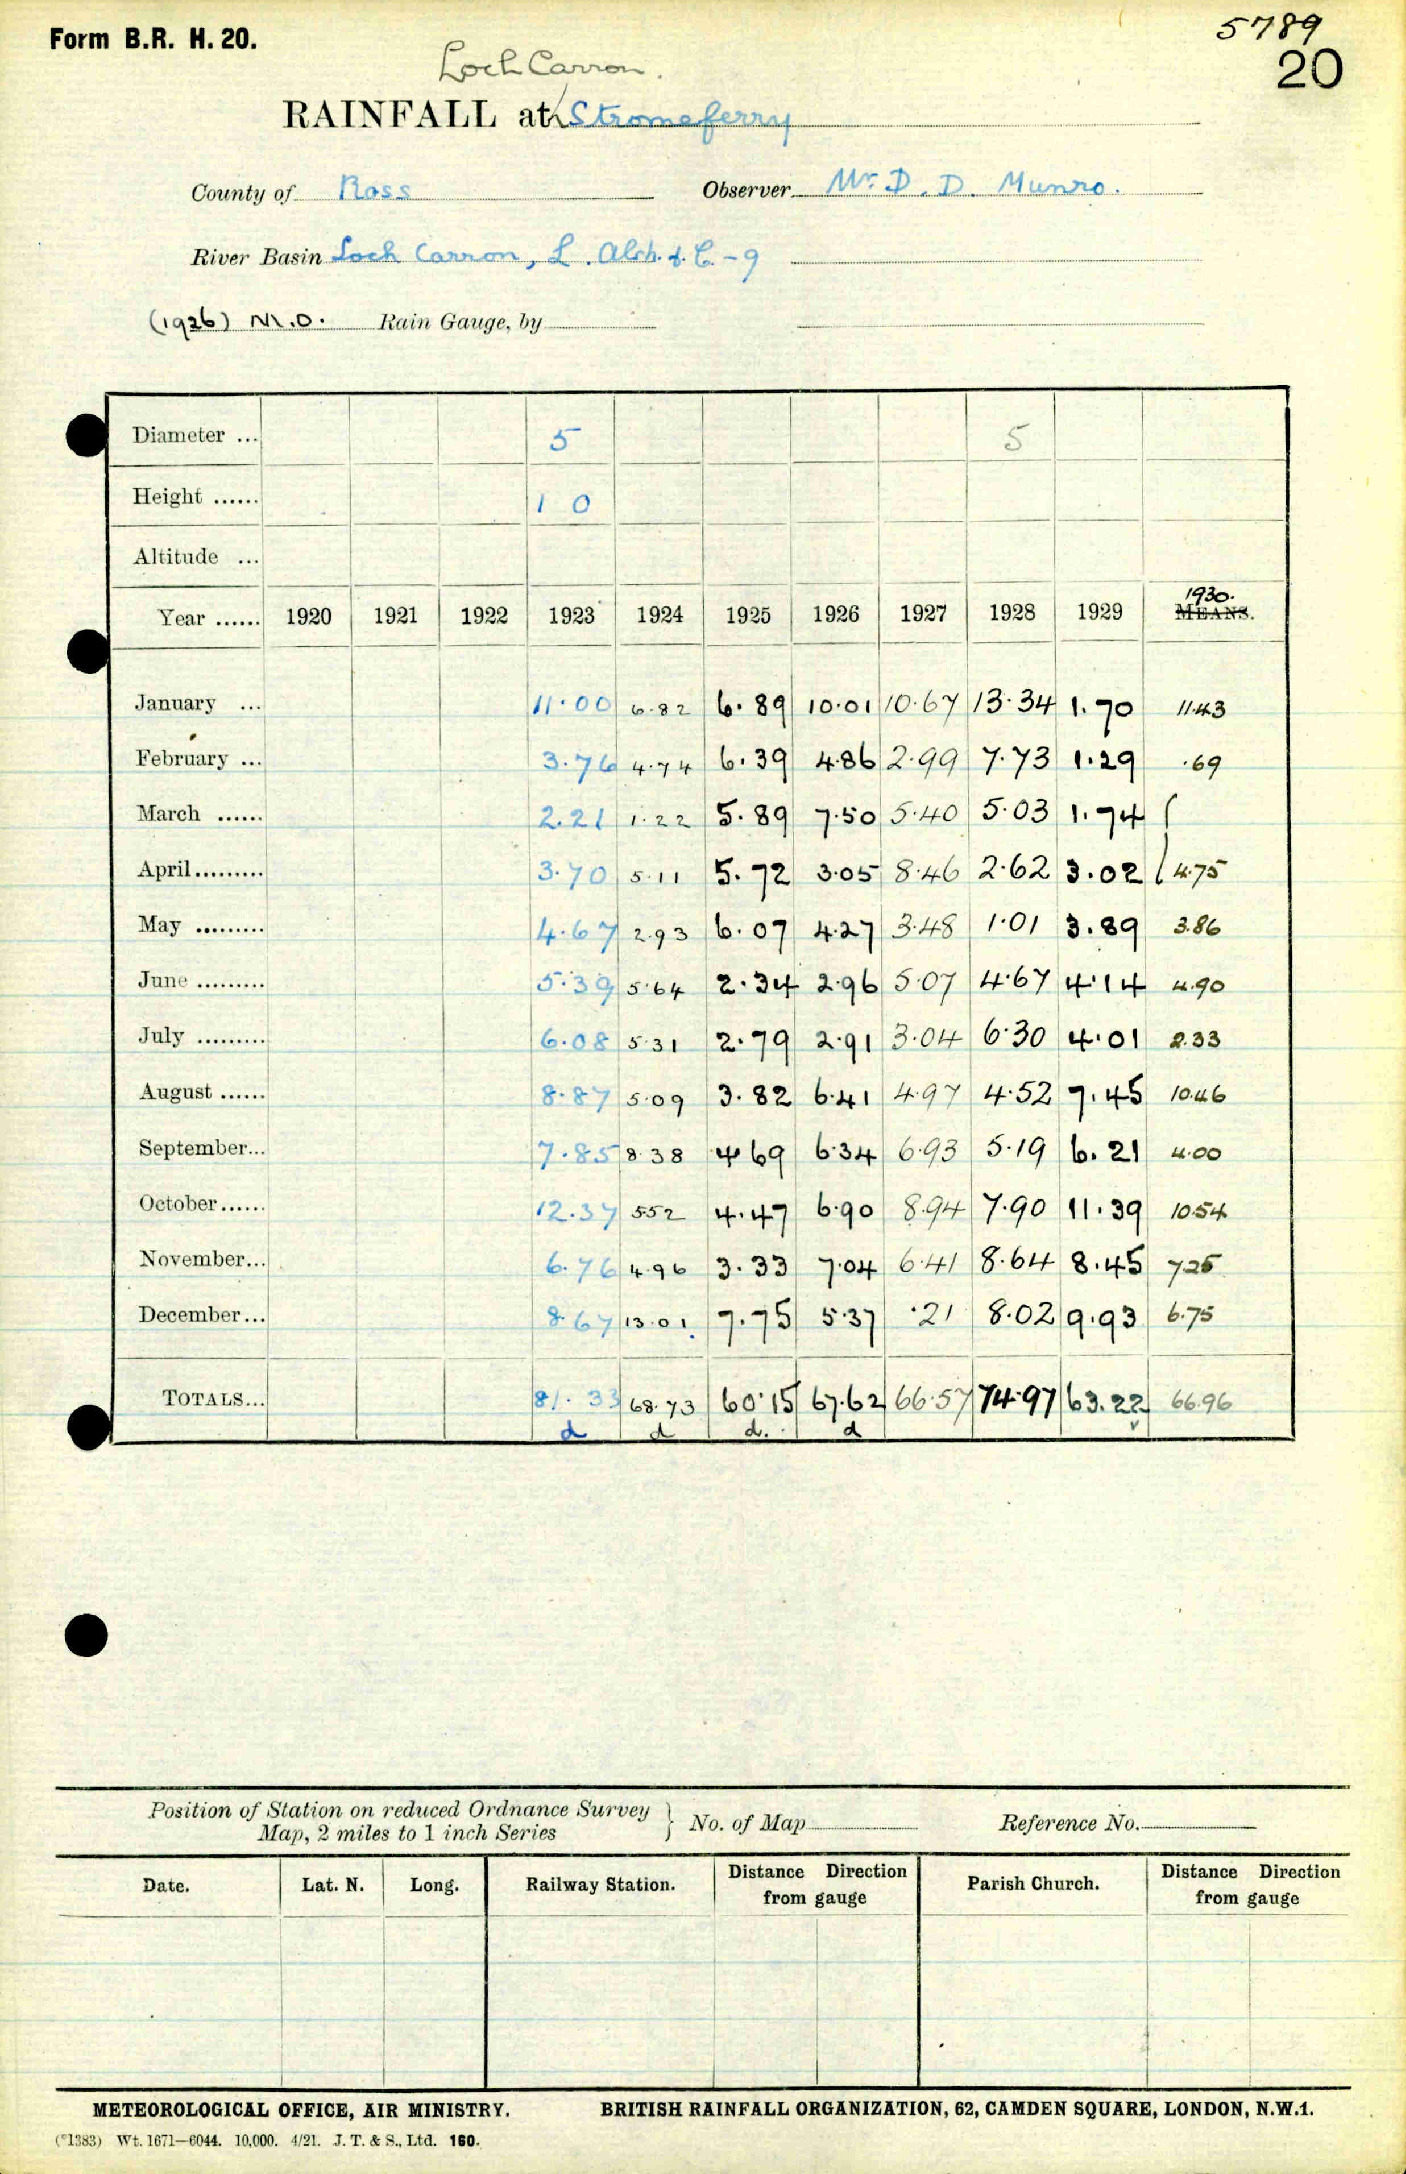 Form B.R. H. 20.
5789
20
Loch Carron.
RAINFALL at Stromeferry
County of Ross Observer Mr. D. D. Munro.
River Basin Loch Carron, L. Alsh. & C. - 9
(1926) M.O. Rain Gauge, by
Diameter ... 5 5
Height ...... 1 0
Altitude ...
1930.
Year ...... 1920 1921 1922 1923 1924 1925 1926 1927 1928 1929 MEANS.
January ... 11.00 6.82 6.89 10.01 10.67 13.34 1.70 11.43
February ... 3.76 4.74 6.39 4.86 2.99 7.73 1.29 .69
March ...... 2.21 1.22 5.89 7.50 5.40 5.03 1.74
April......... 3.70 5.11 5.72 3.05 8.46 2.62 3.02 4.75
May ......... 4.67 2.93 6.07 4.27 3.48 1.01 3.89 3.86
June ......... 5.39 5.64 2.34 2.96 5.07 4.67 4.14 4.90
July ......... 6.08 5.31 2.79 2.91 3.04 6.30 4.01 2.33
August ...... 8.87 5.09 3.82 6.41 4.97 4.52 7.45 10.46
September... 7.85 8.38 4.69 6.34 6.93 5.19 6.21 4.00
October...... 12.37 5.52 4.47 6.90 8.94 7.90 11.39 10.54
November... 6.76 4.96 3.33 7.04 6.41 8.64 8.45 7.25
December... 8.67 13.01 7.75 5.37 .21 8.02 9.93 6.75
TOTALS... 81.33 68.73 60.15 67.62 66.57 74.97 63.22 66.96
d d d. d
Position of Station on reduced Ordnance Survey
Map, 2 miles to 1 inch Series } No. of Map Reference No.
Date. Lat. N. Long. Railway Station. Distance Direction from gauge Parish Church. Distance Direction from gauge
METEOROLOGICAL OFFICE, AIR MINISTRY. BRITISH RAINFALL ORGANIZATION, 62, CAMDEN SQUARE, LONDON, N.W.1.
(*1383) Wt. 1671—6044. 10,000. 4/21. J. T. & S., Ltd. 160.